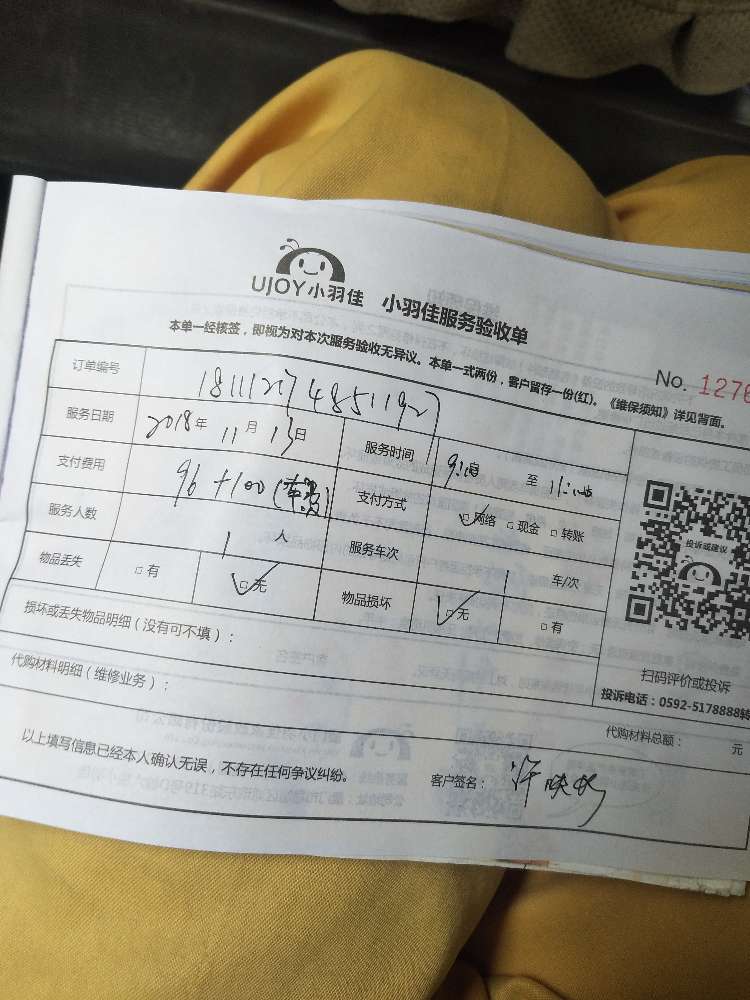 UJOY小羽佳 小羽佳服务验收单
本单一经核签，即视为对本次服务验收无异议。本单一式两份，客户留存一份(红)。《维保须知》详见背面。
No. 1276
订单编号
服务日期 2018年 11月 13日 服务时间 至
支付费用 96+100(车费) 支付方式 ☑网络 □现金 □转账
服务人数 1 人 服务车次 1 车/次
物品丢失 □有 ☑无 物品损坏 ☑无 □有
投诉或建议
损坏或丢失物品明细（没有可不填）：
扫码评价或投诉
投诉电话：0592-5178888转
代购材料明细（维修业务）：
代购材料总额： 元
以上填写信息已经本人确认无误，不存在任何争议纠纷。 客户签名：